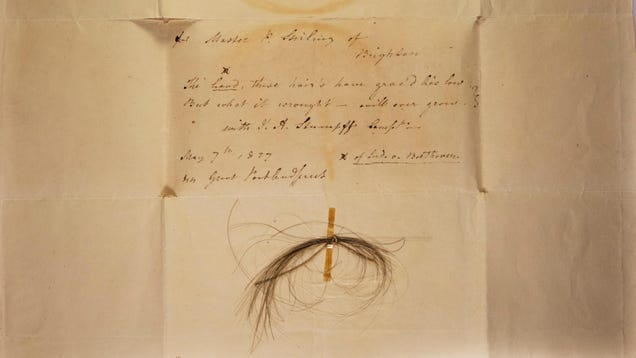 for Master P. Stirling of
Brighton
x
The head, these hair's have grac'd lies low
But what it wrought — will ever grow.
with J. A. Stumpff Compts
May 7th 1827
x of Ludw. v. Beethoven.
Great Portland Street